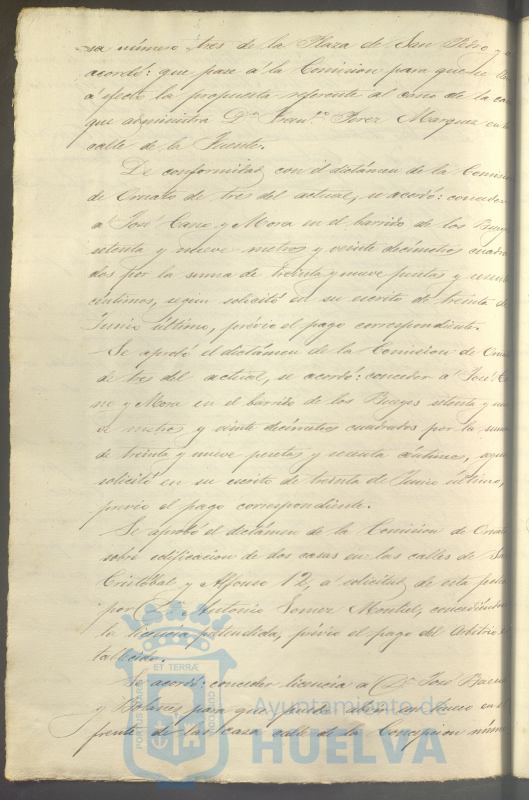 sa número tres de la Plaza de San Pedro y se
acordó: que pase á la Comision para que
á efecto la propuesta referente al caso de la ca
que administra Dⁿ Franᶜᵒ Perez Marquez en la
calle de la Fuente.
De conformidad con el dictámen de la Comision
de Ornato de tres del actual, se acordó: conceder
a José Cano y Mora en el barrido de los Burgos
setenta y nueve metros y veinte decímetros cuadra
dos por la suma de treinta y nueve pesetas y sesenta
céntimos, segun solicitó en su escrito de treinta de
Junio último, prévio el pago correspondiente.
Se aprobó el dictámen de la Comision de Ornato
de tres del actual, se acordó: conceder a José Ca
no y Mora en el barrido de los Burgos setenta y nue
ve metros y veinte decímetros cuadrados por la suma
de treinta y nueve pesetas y sesenta céntimos, segun
solicitó en su escrito de treinta de Junio último,
prévio el pago correspondiente.
Se aprobó el dictámen de la Comision de Ornato
sobre edificacion de dos casas en las calles de San
Cristóbal y Alfonso 12, a solicitud de esta
por D. Antonio Gomez Montiel, concediéndole
la licencia pretendida, prévio el pago del Arbitrio es
tablecido.
Se acordó: conceder licencia a D. José
y para que pueda abrir un hueco en el
frente de las casa calle de la Concepcion núme
PORTUS MARIS ET TERRÆ CUSTODIA
Ayuntamiento de
HUELVA